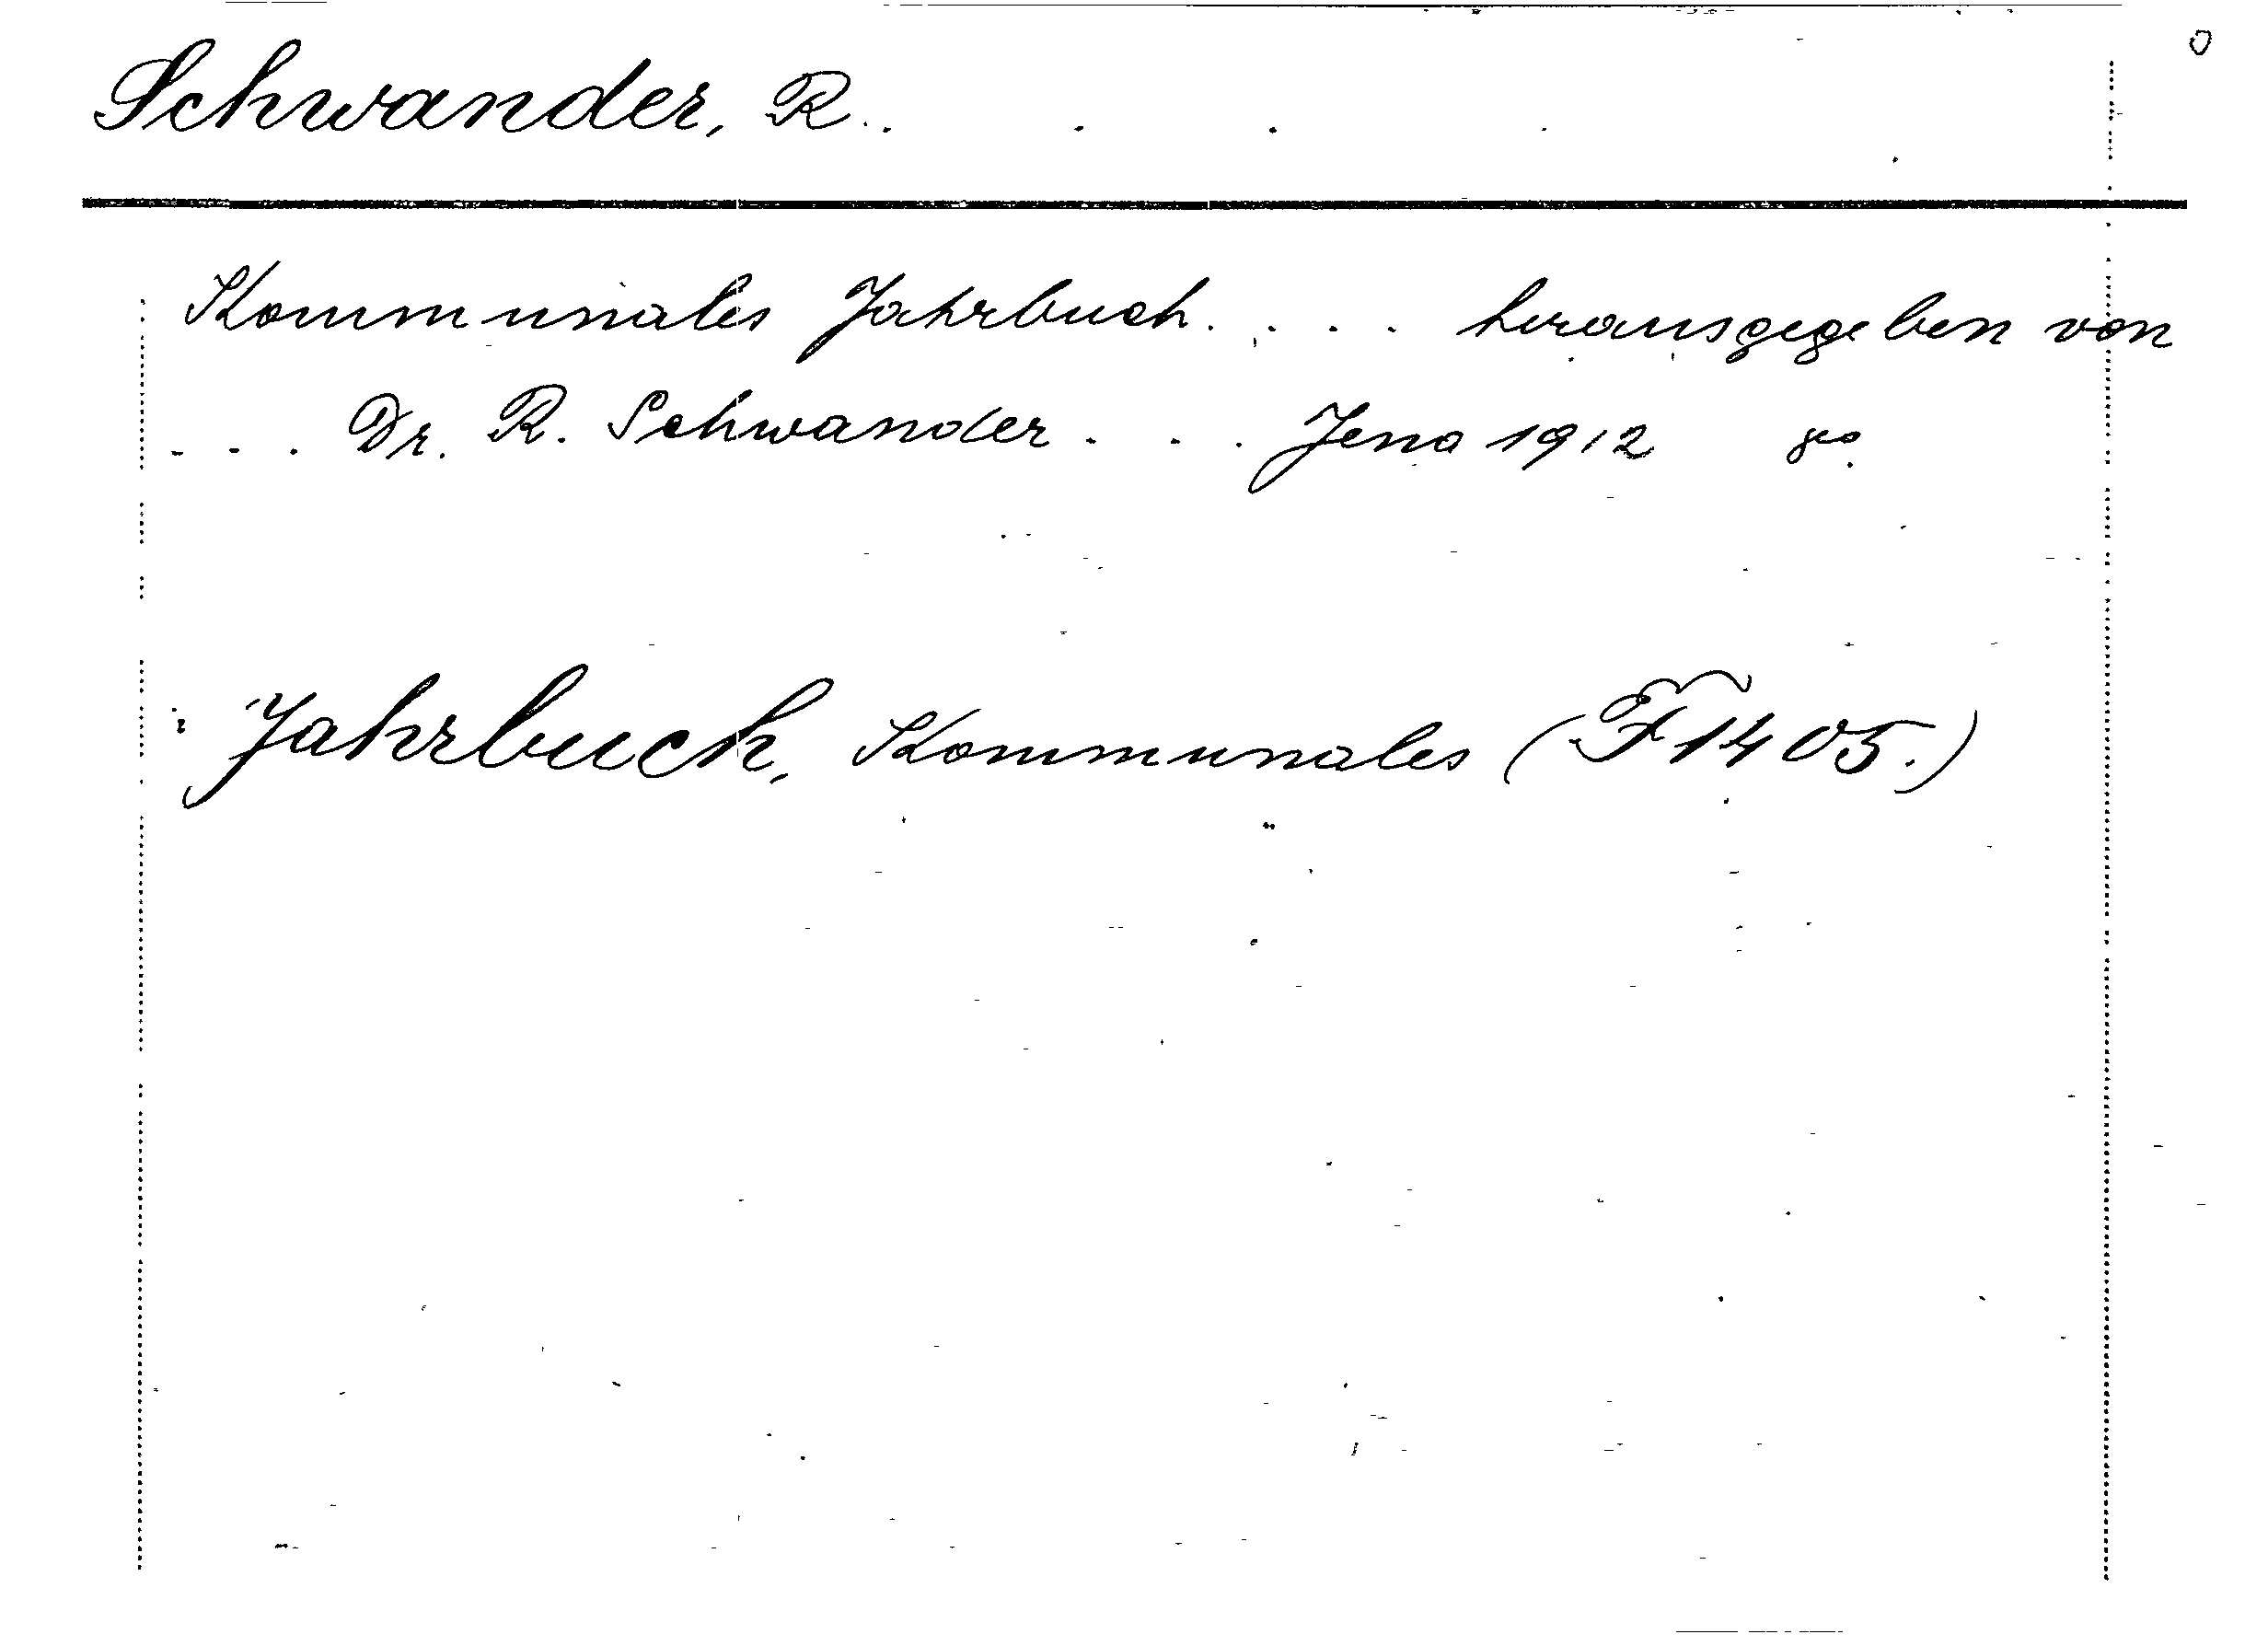 Schwander, R.
Kommunales Jahrbuch. . . . herausgegeben von
. . . Dr. R. Schwander . . . Jena 1912 8°.
Jahrbuch, Kommunales (F 1405.)